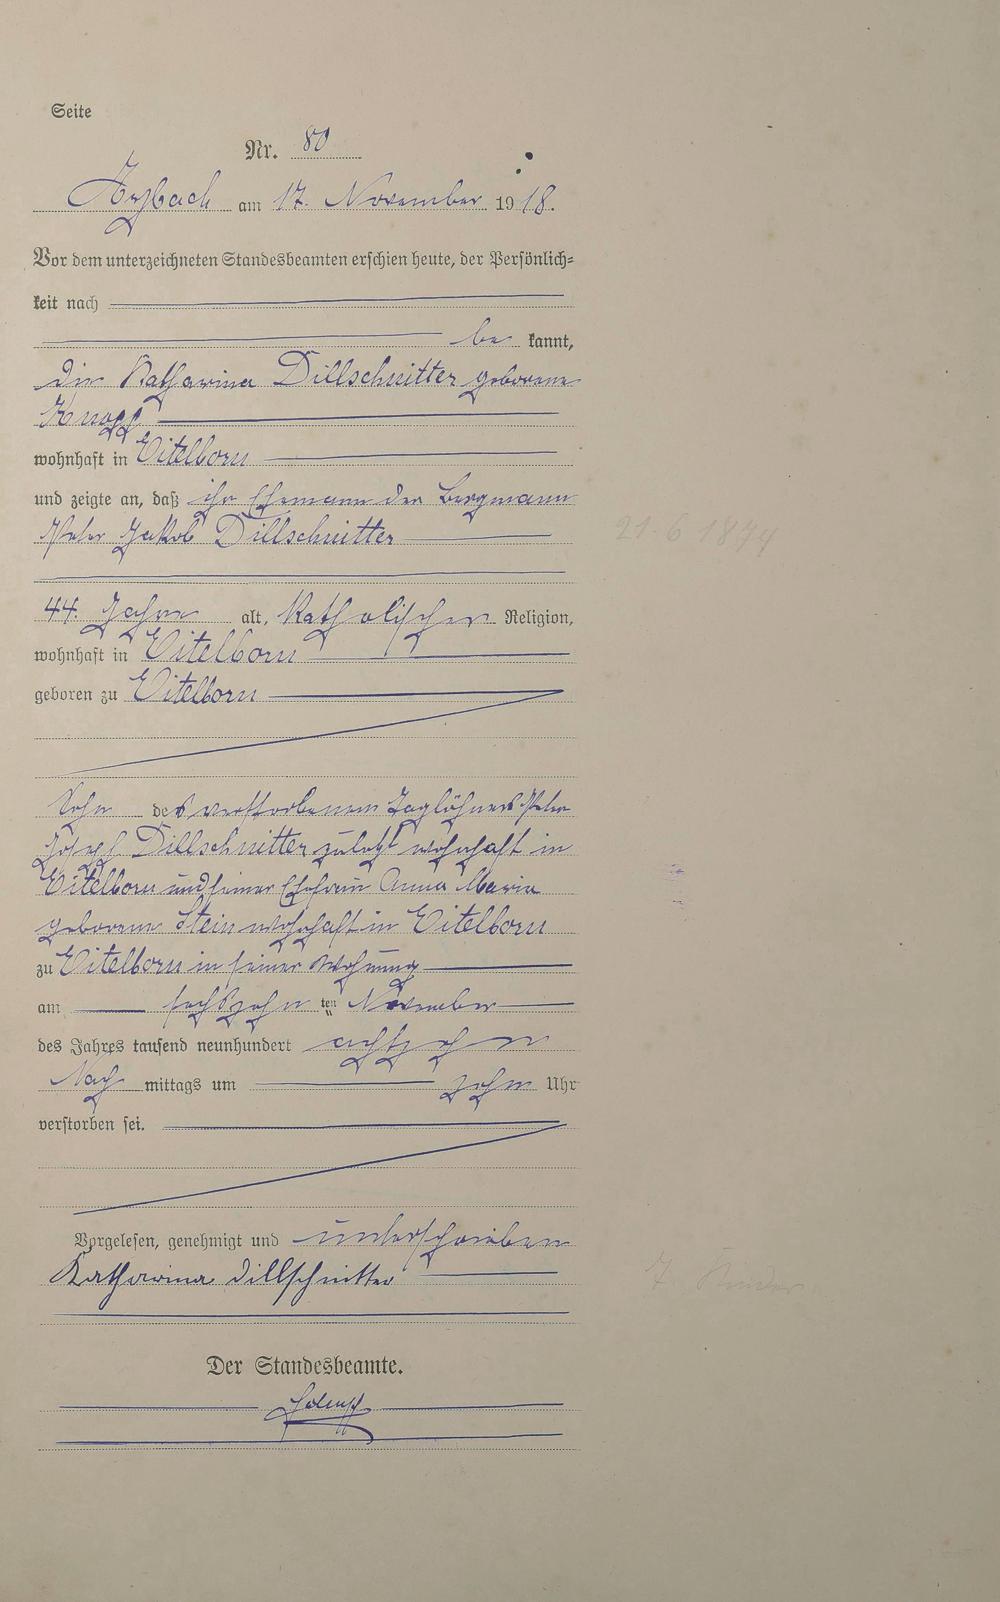 Seite
Nr. 80
Arzbach am 17. November 1918.
Vor dem unterzeichneten Standesbeamten erschien heute, der Persönlich=
keit nach
be kannt,
die Katharina Dillschnitter geborene
Knopp
wohnhaft in Eitelborn
und zeigte an, daß ihr Ehemann der Bergmann
Peter Jakob Dillschnitter
21.6 1874
44. Jahre alt, Katholischer Religion,
wohnhaft in Eitelborn
geboren zu Eitelborn
Sohn des verstorbenen Taglöhners Peter
Joseph Dillschnitter zuletzt wohnhaft in
Eitelborn und seiner Ehefrau Anna Maria
geborene Stein wohnhaft in Eitelborn
zu Eitelborn in seiner Wohnung
am sechszehnten November
des Jahres tausend neunhundert achtzehn
Nach mittags um zehn Uhr
verstorben sei.
Vorgelesen, genehmigt und unterschrieben
Katharina Dillschnitter
7. Kinder
Der Standesbeamte.